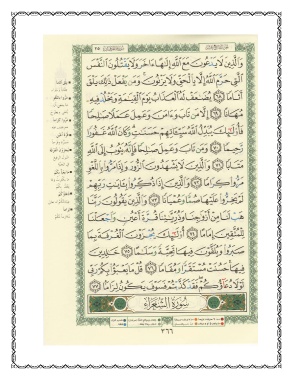 وَٱلَّذِينَ لَا يَدْعُونَ مَعَ ٱللَّهِ إِلَٰهًا ءَاخَرَ وَلَا يَقْتُلُونَ ٱلنَّفْسَ
ٱلَّتِي حَرَّمَ ٱللَّهُ إِلَّا بِٱلْحَقِّ وَلَا يَزْنُونَ وَمَن يَفْعَلْ ذَٰلِكَ يَلْقَ
أَثَامًا ٦٨ يُضَٰعَفْ لَهُ ٱلْعَذَابُ يَوْمَ ٱلْقِيَٰمَةِ وَيَخْلُدْ فِيهِۦ
مُهَانًا ٦٩ إِلَّا مَن تَابَ وَءَامَنَ وَعَمِلَ عَمَلًا صَٰلِحًا
فَأُو۟لَٰٓئِكَ يُبَدِّلُ ٱللَّهُ سَيِّـَٔاتِهِمْ حَسَنَٰتٍ وَكَانَ ٱللَّهُ غَفُورًا
رَّحِيمًا ٧٠ وَمَن تَابَ وَعَمِلَ صَٰلِحًا فَإِنَّهُۥ يَتُوبُ إِلَى ٱللَّهِ
مَتَابًا ٧١ وَٱلَّذِينَ لَا يَشْهَدُونَ ٱلزُّورَ وَإِذَا مَرُّوا۟ بِٱللَّغْوِ
مَرُّوا۟ كِرَامًا ٧٢ وَٱلَّذِينَ إِذَا ذُكِّرُوا۟ بِـَٔايَٰتِ رَبِّهِمْ
لَمْ يَخِرُّوا۟ عَلَيْهَا صُمًّا وَعُمْيَانًا ٧٣ وَٱلَّذِينَ يَقُولُونَ رَبَّنَا
هَبْ لَنَا مِنْ أَزْوَٰجِنَا وَذُرِّيَّٰتِنَا قُرَّةَ أَعْيُنٍ وَٱجْعَلْنَا
لِلْمُتَّقِينَ إِمَامًا ٧٤ أُو۟لَٰٓئِكَ يُجْزَوْنَ ٱلْغُرْفَةَ بِمَا
صَبَرُوا۟ وَيُلَقَّوْنَ فِيهَا تَحِيَّةً وَسَلَٰمًا ٧٥ خَٰلِدِينَ
فِيهَا حَسُنَتْ مُسْتَقَرًّا وَمُقَامًا ٧٦ قُلْ مَا يَعْبَؤُا۟ بِكُمْ رَبِّي
لَوْلَا دُعَآؤُكُمْ فَقَدْ كَذَّبْتُمْ فَسَوْفَ يَكُونُ لِزَامًا ٧٧
سُورَةُ الشُّعَرَاءِ
٣٦٦